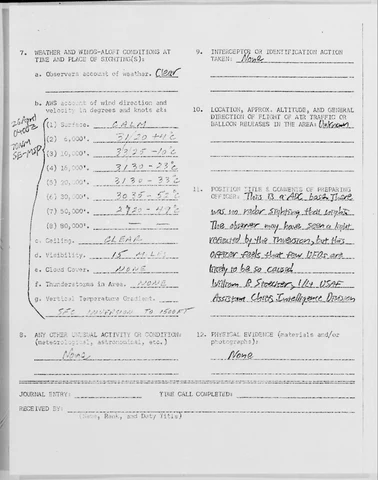 7. WEATHER AND WINDS-ALOFT CONDITIONS AT
TIME AND PLACE OF SIGHTING(S):
a. Observers account of weather. Clear
b. AWS account of wind direction and
velocity in degrees and knots at:
0400Z
(1) Surface. CALM
(2) 6,000'. 3120 +4°C
(3) 10,000'. 3325 -10°C
(4) 16,000'. 3130 -23°C
(5) 20,000'. 3135 -33°C
(6) 30,000'. 3035 -52°C
(7) 50,000'.
(8) 80,000'.
c. Ceiling. CLEAR
d. Visibility. 15 MILES
e. Cloud Cover. NONE
f. Thunderstorms in Area. NONE
g. Vertical Temperature Gradient.
SFC INVERSION TO 1500FT
8. ANY OTHER UNUSUAL ACTIVITY OR CONDITION:
(meteorological, astronomical, etc.)
None
9. INTERCEPTOR OR IDENTIFICATION ACTION
TAKEN: None
10. LOCATION, APPROX. ALTITUDE, AND GENERAL
DIRECTION OF FLIGHT OF AIR TRAFFIC OR
BALLOON RELEASES IN THE AREA: Unknown
11. POSITION TITLE & COMMENTS OF PREPARING
OFFICER: This is a ADC base. There
was no radar sighting that night.
The observer may have seen a light
refracted by the inversion, but this
officer feels that few UFOs are
likely to be so caused
William B 1/Lt USAF
Assistant Chief, Intelligence Division
12. PHYSICAL EVIDENCE (materials and/or
photographs):
None
JOURNAL ENTRY: TIME CALL COMPLETED:
RECEIVED BY:
(Name, Rank, and Duty Title)